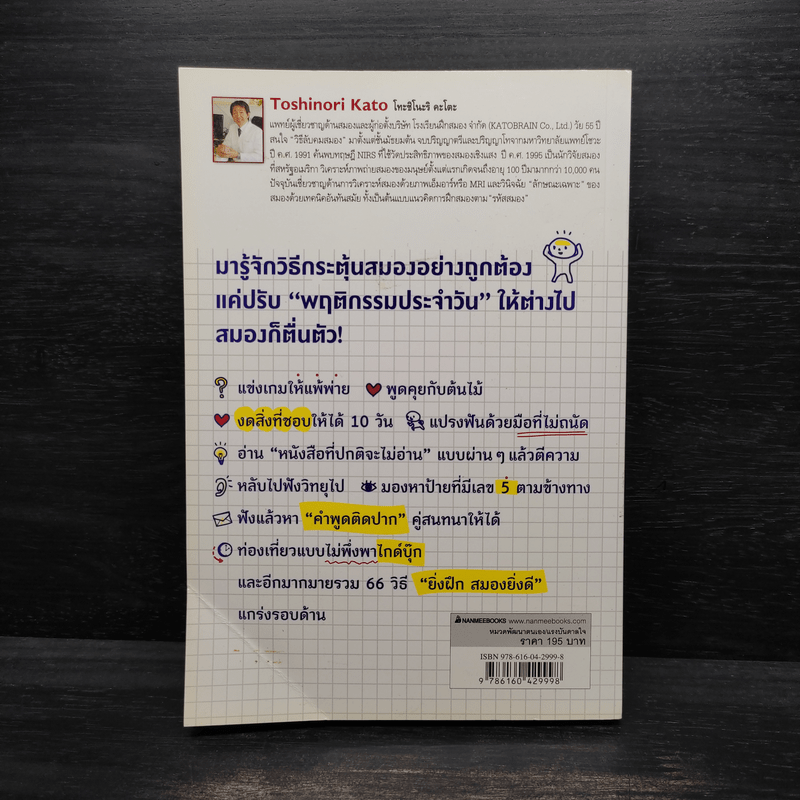 Toshinori Kato โทะชิโนะริ คะโตะ
แพทย์ผู้เชี่ยวชาญด้านสมองและผู้ก่อตั้งบริษัท โรงเรียนฝึกสมอง จำกัด (KATOBRAIN Co., Ltd.) วัย 55 ปี
สนใจ "วิธีลับคมสมอง" มาตั้งแต่ชั้นมัธยมต้น จบปริญญาตรีและปริญญาโทจากมหาวิทยาลัยแพทย์โชวะ
ปี ค.ศ. 1991 ค้นพบทฤษฎี NIRS ที่ใช้วัดประสิทธิภาพของสมองเชิงแสง ปี ค.ศ. 1995 เป็นนักวิจัยสมอง
ที่สหรัฐอเมริกา วิเคราะห์ภาพถ่ายสมองของมนุษย์ตั้งแต่แรกเกิดจนถึงอายุ 100 ปีมามากกว่า 10,000 คน
ปัจจุบันเชี่ยวชาญด้านการวิเคราะห์สมองด้วยภาพเอ็มอาร์หรือ MRI และวินิจฉัย "ลักษณะเฉพาะ" ของ
สมองด้วยเทคนิคอันทันสมัย ทั้งเป็นต้นแบบแนวคิดการฝึกสมองตาม "รหัสสมอง"
มารู้จักวิธีกระตุ้นสมองอย่างถูกต้อง
แค่ปรับ "พฤติกรรมประจำวัน" ให้ต่างไป
สมองก็ตื่นตัว!
แข่งเกมให้แพ้พ่าย พูดคุยกับต้นไม้
งดสิ่งที่ชอบให้ได้ 10 วัน แปรงฟันด้วยมือที่ไม่ถนัด
อ่าน "หนังสือที่ปกติจะไม่อ่าน" แบบผ่าน ๆ แล้วตีความ
หลับไปฟังวิทยุไป มองหาป้ายที่มีเลข 5 ตามข้างทาง
ฟังแล้วหา "คำพูดติดปาก" คู่สนทนาให้ได้
ท่องเที่ยวแบบไม่พึ่งพาไกด์บุ๊ก
และอีกมากมายรวม 66 วิธี "ยิ่งฝึก สมองยิ่งดี"
แกร่งรอบด้าน
NANMEEBOOKS www.nanmeebooks.com
หมวดพัฒนาตนเอง/แรงบันดาลใจ
ราคา 195 บาท
ISBN 978-616-04-2999-8
9 786160 429998